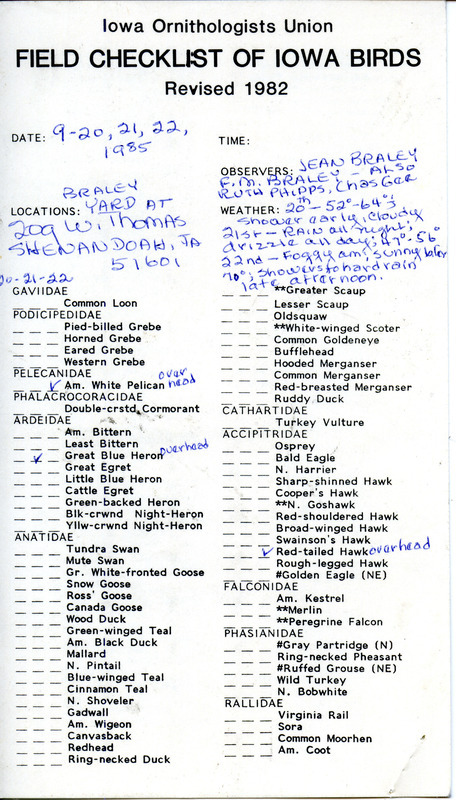 Iowa Ornithologists Union
FIELD CHECKLIST OF IOWA BIRDS
Revised 1982
DATE: 9-20, 21, 22,
1985
BRALEY
LOCATIONS: YARD AT
209 W. THOMAS
SHENANDOAH, IA
51601
20-21-22
GAVIIDAE
_ _ _ Common Loon
PODICIPEDIDAE
_ _ _ Pied-billed Grebe
_ _ _ Horned Grebe
_ _ _ Eared Grebe
_ _ _ Western Grebe
PELECANIDAE
_ _ ✓ Am. White Pelican over head
PHALACROCORACIDAE
_ _ _ Double-crstd. Cormorant
ARDEIDAE
_ _ _ Am. Bittern
_ _ _ Least Bittern
_ ✓ _ Great Blue Heron overhead
_ _ _ Great Egret
_ _ _ Little Blue Heron
_ _ _ Cattle Egret
_ _ _ Green-backed Heron
_ _ _ Blk-crwnd Night-Heron
_ _ _ Yllw-crwnd Night-Heron
ANATIDAE
_ _ _ Tundra Swan
_ _ _ Mute Swan
_ _ _ Gr. White-fronted Goose
_ _ _ Snow Goose
_ _ _ Ross' Goose
_ _ _ Canada Goose
_ _ _ Wood Duck
_ _ _ Green-winged Teal
_ _ _ Am. Black Duck
_ _ _ Mallard
_ _ _ N. Pintail
_ _ _ Blue-winged Teal
_ _ _ Cinnamon Teal
_ _ _ N. Shoveler
_ _ _ Gadwall
_ _ _ Am. Wigeon
_ _ _ Canvasback
_ _ _ Redhead
_ _ _ Ring-necked Duck
TIME:
OBSERVERS: JEAN BRALEY
F. M. BRALEY - ALSO
RUTH PHIPPS, Chas Gee
WEATHER: 20th - 52°-64°;
shower early, cloudy
21st - RAIN all night,
drizzle all day; 47°-56°
22nd - Foggy am; sunny later
70°; showers to hard rain
late afternoon.
_ _ _ **Greater Scaup
_ _ _ Lesser Scaup
_ _ _ Oldsquaw
_ _ _ **White-winged Scoter
_ _ _ Common Goldeneye
_ _ _ Bufflehead
_ _ _ Hooded Merganser
_ _ _ Common Merganser
_ _ _ Red-breasted Merganser
_ _ _ Ruddy Duck
CATHARTIDAE
_ _ _ Turkey Vulture
ACCIPITRIDAE
_ _ _ Osprey
_ _ _ Bald Eagle
_ _ _ N. Harrier
_ _ _ Sharp-shinned Hawk
_ _ _ Cooper's Hawk
_ _ _ **N. Goshawk
_ _ _ Red-shouldered Hawk
_ _ _ Broad-winged Hawk
_ _ _ Swainson's Hawk
_ _ ✓ Red-tailed Hawk overhead
_ _ _ Rough-legged Hawk
_ _ _ #Golden Eagle (NE)
FALCONIDAE
_ _ _ Am. Kestrel
_ _ _ **Merlin
_ _ _ **Peregrine Falcon
PHASIANIDAE
_ _ _ #Gray Partridge (N)
_ _ _ Ring-necked Pheasant
_ _ _ #Ruffed Grouse (NE)
_ _ _ Wild Turkey
_ _ _ N. Bobwhite
RALLIDAE
_ _ _ Virginia Rail
_ _ _ Sora
_ _ _ Common Moorhen
_ _ _ Am. Coot